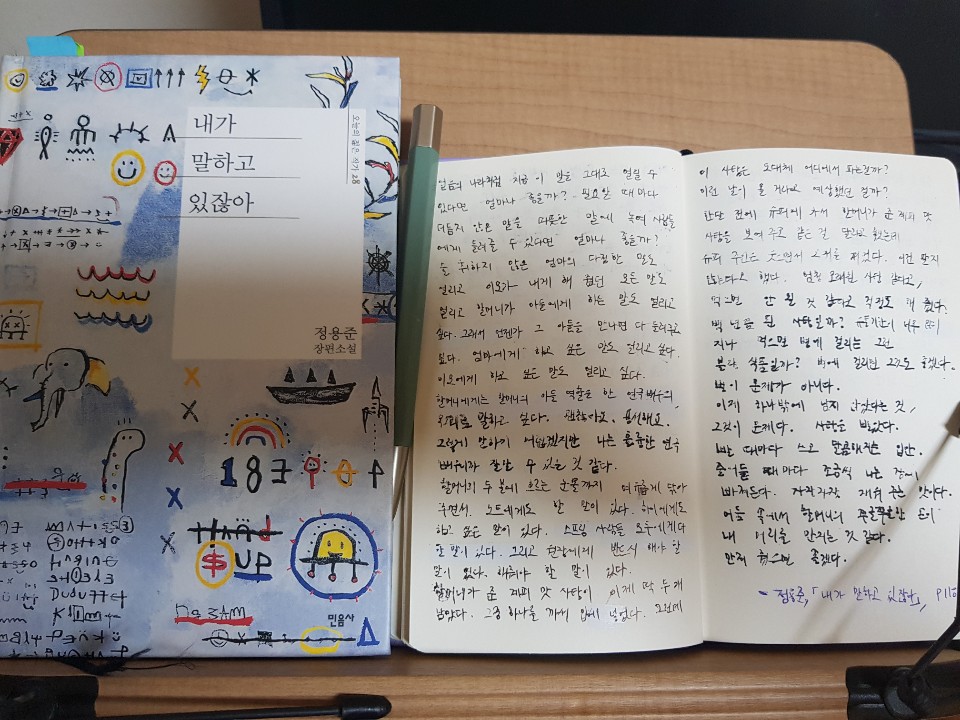 내가
말하고
있잖아
오늘의 젊은 작가 28
정용준
장편소설
187
Hand
$UP
민음사
얼음의 나라처럼 지금 이 말을 그대로 얼릴 수
있다면 얼마나 좋을까? 필요할 때마다
더듬지 않은 말을 따뜻한 물에 녹여 사람들
에게 들려줄 수 있다면 얼마나 좋을까?
술 취하지 않은 엄마의 다정한 말도
얼리고 이모가 내게 해 줬던 모든 말도
얼리고 할머니가 아들에게 하는 말도 얼리고
싶다. 그래서 언젠가 그 아들을 만나면 다 들려주고
싶다. 엄마에게 하고 싶은 말도 얼리고 싶다.
이모에게 하고 싶은 말도 얼리고 싶다.
할머니에게는 할머니의 아들 역할을 한 연극배우의
말하고 싶다. 괜찮아요. 용서해요.
그렇게 말하기 어렵겠지만 나는 훌륭한 연극
배우니까 잘할 수 있는 것 같다.
할머니의 두 볼에 흐르는 눈물까지 닦아
주면서. 노트에게도 할 말이 있다. 하이에게도
하고 싶은 말이 있다. 스프링 사람들 모두에게 다
할 말이 있다. 그리고 한 반드시 해야 할
말이 있다. 해줘야 할 말이 있다.
할머니가 준 계피 맛 사탕이 이제 딱 두 개
남았다. 그중 하나를 까서 입에 넣었다. 오래된
이 사탕은 도대체 어디에서 파는걸까?
이런 날이 올 거라고 예상했던 걸까?
한달 전에 슈퍼에 가서 할머니가 준 계피 맛
사탕을 보여 주고 같은 걸 달라고 했는데
슈퍼 주인은 웃으면서 저었다. 이런 건지
했다. 엄청 오래된 사탕 같다고,
먹으면 안 될 것 같다고 걱정도 해 줬다.
백 년쯤 된 사탕일까? 유통기한이 너무 많이
지나 먹으면 병에 걸리는 그런
불량 식품일까? 병에 걸리면 그것도 좋겠다.
병이 문제가 아니다.
이제 하나밖에 남지 않았다는 것,
그것이 문제다. 사탕을 빨았다.
빨 때마다 쓰고 달콤해지는 입안.
줄어들 때마다 조금씩 나는 잠에
빠져든다. 자장자장 재워 주는 맛이다.
어둠 속에서 할머니의 쭈글쭈글한 손이
내 머리를 만지는 것 같다.
만져 줬으면 좋겠다.
- 정용준, 「내가 말하고 있잖아」,